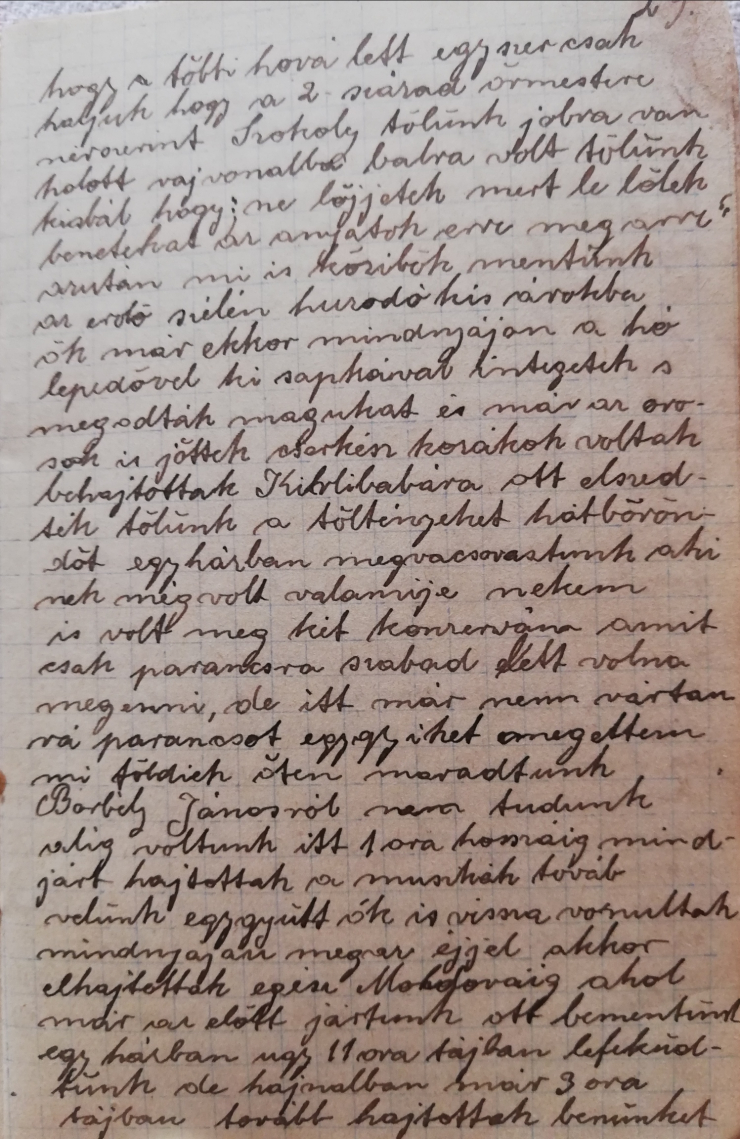 hogy a többi hová lett egyszer csak
haljuk hogy a 2 század őrmestere
névszerint Szokoly tőlünk jobra van
holott rajvonalba balra volt tőlünk
kiabál hogy; ne lőjjetek mert le lőlek
beneteket az anyátok erre meg arra"
azután mi is közibök mentünk
az erdő szélén huzodó kis árokba
ők már ekkor mindnyájan a hó
lepedővel ki sapkával integetek s
megadták magukat és már az oro-
sok is jöttek cserkész kozákok voltak
behajtottak Kirlibabára ott elszed-
ték tőlünk a töltényeket hátbőrön-
döt egy házban megvacsoraztunk aki
nek még volt valamije nekem
is volt meg két konzervám amit
csak parancsra szabad lett volna
megenni, de itt már nem vártam
rá parancsot egygyiket megettem
mi földiek öten maradtunk
Borbély Jánosról nem tudunk
alig voltunk itt 1 ora hosszáig mind-
járt hajtottak a muszkák továb
velünk eggyütt ők is vissza vonultak
mindnyájan megaz éjjel akkor
elhajtottak egész Moldováig ahol
már az előtt jártunk ott bementünk
egy házban ugy 11 ora tájban lefeküd-
tünk de hajnalban már 3 ora
tájban tovább hajtottak benünket